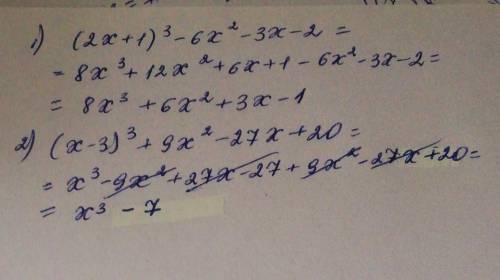 1) (2x+1)³-6x²-3x-2=
=8x³+12x²+6x+1-6x²-3x-2=
=8x³+6x²+3x-1
2) (x-3)³+9x²-27x+20=
=x³-9x²+27x-27+9x²-27x+20=
=x³-7